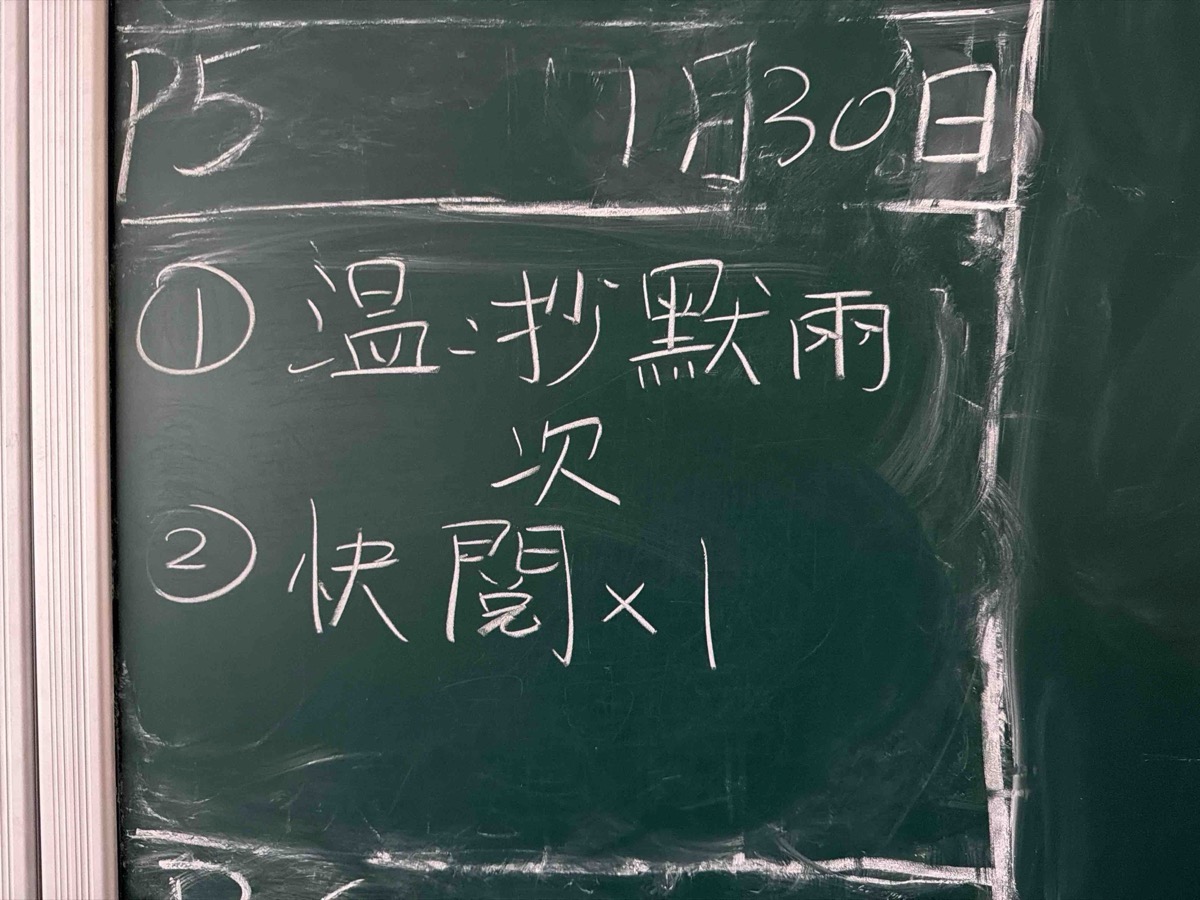 P5 1月30日
① 温:抄默雨
次
② 快閱×1